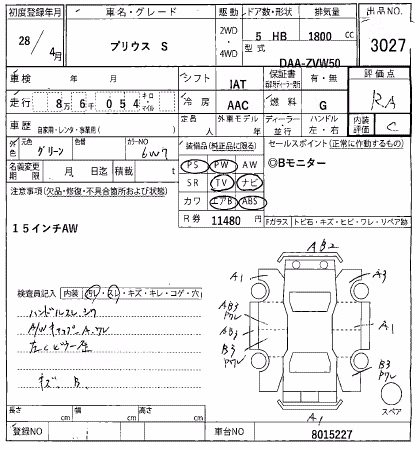 初度登録年月 車名・グレード 駆動 ドア数・形状 排気量 出品NO.
28/4月 プリウス S 2WD・4WD 5 HB 1800 cc 3027
型式 DAA-ZVW50
車検 年 月 シフト IAT 保証書 有・無 評価点
走行 8万6千054 キロ・マイル 冷房 AAC 燃料 G RA
車歴 自家用・レンタ・事業用( ) 定員 人 外車モデル 年 ディーラー・並行 ハンドル 左・右 内装評価 C
外色 元色 グリーン 色替 カラーNO 6W7 装備品(純正品に限る) セールスポイント(正常に作動するもの)
名義変更期限 月 日迄 積載 t PS PW AW ◎Bモニター
注意事項(欠品・修復・不具合箇所および状態) SR TV ナビ
カワ エアB ABS
15インチAW R券 11480 円 Fガラス トビ石・キズ・ヒビ・ワレ・リペア跡
検査員記入 内装 汚レ・スレ・キズ・キレ・コゲ・穴
ハンドルスレ、シワ
キズ、B
AB2
A1 A3
AB3
ワレ
AB3 A1
B3
ワレ
B3
ワレ
A1
スペア
長さ cm 幅 cm 高さ cm
登録NO 車台NO 8015227